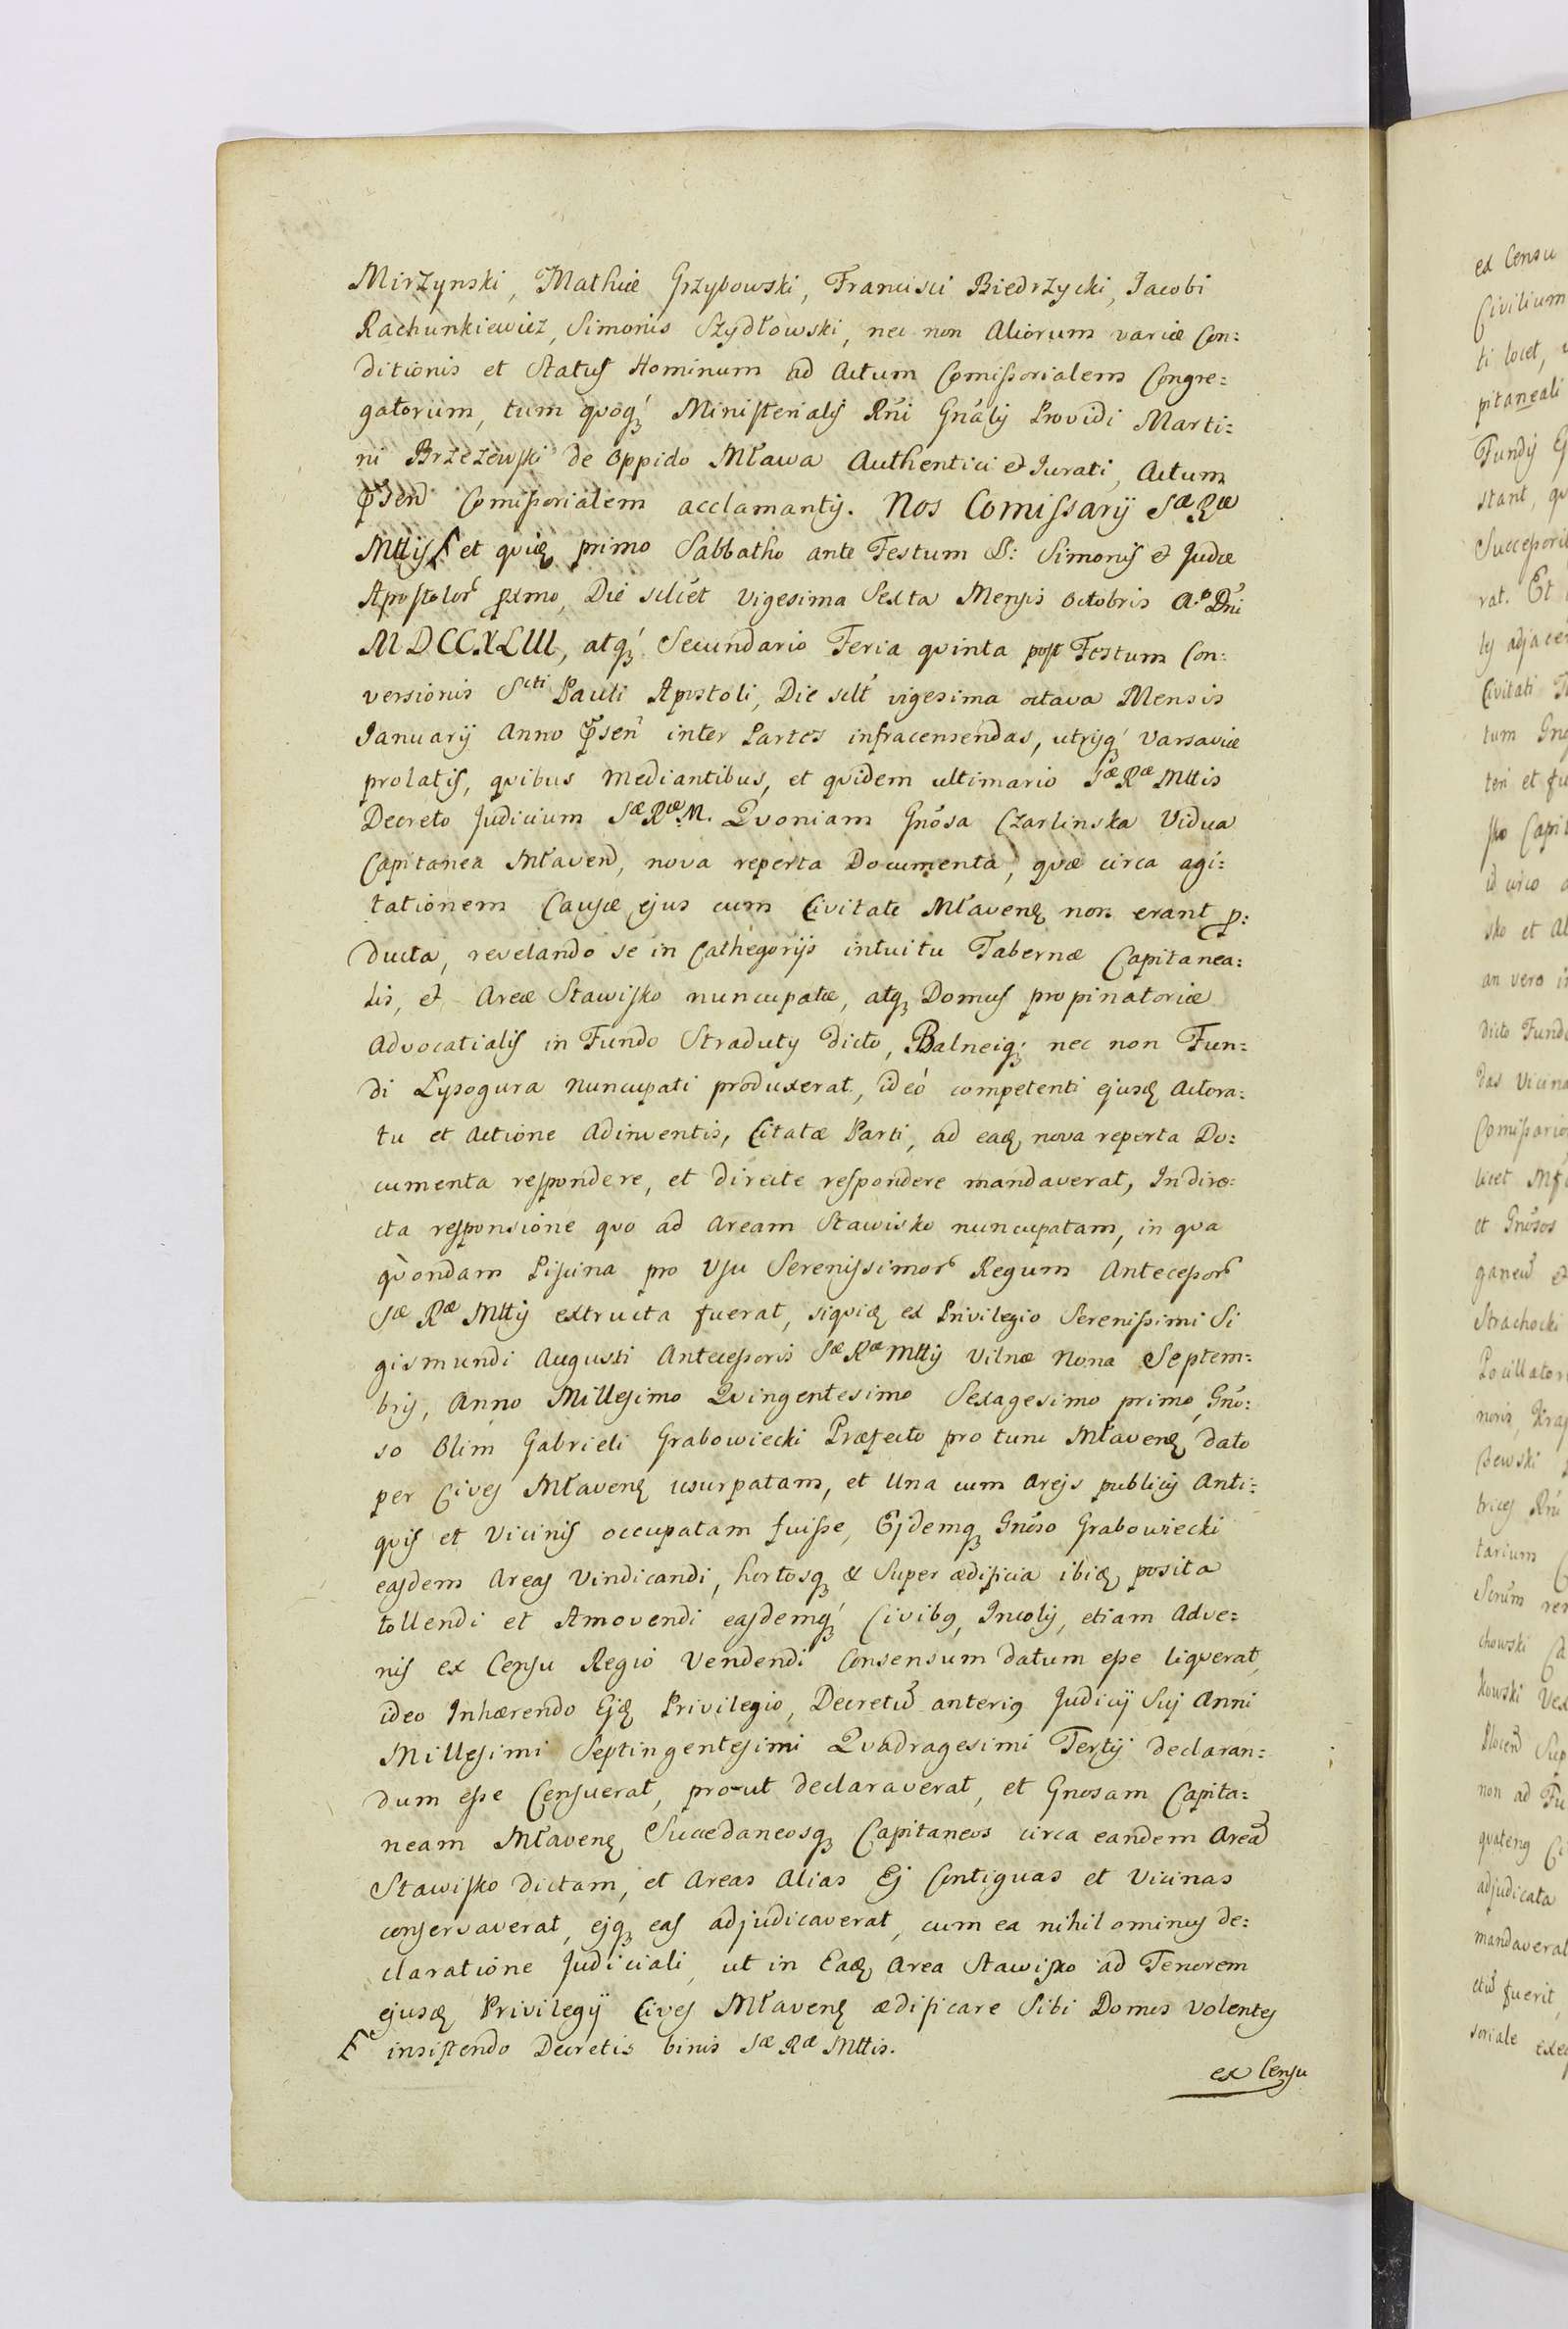 Mirzynski, Mathiæ Grzybowski, Francisci Biedrzycki, Jacobi
Rachunkiewicz, Simonis Szydłowski, nec non Aliorum variæ Con:
ditionis et Status Hominum ad Actum Comissorialem Congre:
gatorum, tum quoq; Ministerialis Rni Gnalis Providi Marti:
ni Brzezewski de Oppido Mława Authentici et Jurati, Actum
Psen Comissorialem acclamantis. Nos Comissarij Sæ Ræ
Mttis et quidem primo Sabbatho ante Festum S: Simonis et Judæ
Apostolor pxmo, Die scilicet vigesima Sexta Mensis Octobris Ao Dni
MDCCXLIII, atq; Secundario Feria quinta post Festum Con:
versionis Scti Pauli Apostoli, Die sclt vigesima octava Mensis
Januarij Anno Psen inter Partes infracensendas, utrisq; Varsaviæ
prolatis, quibus mediantibus, et quidem ultimario Sæ Ræ Mttis
Decreto Judicium Sæ Ræ M. Quoniam Gnosa Czarlinska Vidua
Capitanea Młaven, nova reperta Documenta, quæ circa agi:
tationem Causæ ejus cum Civitate Młaven non erant p:
ducta, revelando se in Cathegorijs intuitu Tabernæ Capitanea:
lis, et Areæ Stawisko nuncupatæ, atq; Domus propinatoriæ
Advocatialis in Fundo Straduty dicto, Balneiq; nec non Fun:
di Łysogura nuncupati produxerat, ideó competenti ejusd Actora:
tu et Actione Adinventis, Citatæ Parti, ad ead nova reperta Do:
cumenta respondere, et directe respondere mandaverat, In dire:
cta responsione quo ad Aream Stawisko nuncupatam, in qua
quondam Piscina pro Usu Serenissimor Regum Antecessor
Sæ Ræ Mttis extructa fuerat, siquid ex Privilegio Serenissimi Si
gismundi Augusti Antecessoris Sæ Ræ Mttis Vilnæ Nona Septem:
bris, Anno Millesimo Quingentesimo Sexagesimo primo, Gno:
so Olim Gabrieli Grabowiecki Præfecto pro tunc Młaven dato
per Cives Młaven usurpatam, et Una cum Areis publicis Anti:
quis et Vicinis occupatam fuisse, Ejdemq; Gnoso Grabowiecki
easdem Areas Vindicandi, hortosq; & Super ædificia ibid posita
tollendi et Amovendi easdemq; Civibq, Incolis, etiam Adve:
nis ex Censu Regio Vendendi Consensum datum esse liquerat,
ideo Inhærendo Ejd Privilegio, Decretu anteriq Judicij Sui Anni
Millesimi Septingentesimi Quadragesimi Tertij declaran:
dum esse Censuerat, pro-ut declaraverat, et Gnosam Capita:
neam Młaven Succedaneosq; Capitaneos circa eandem Area
Stawisko dictam, et Areas Alias Ej Contiguas et Vicinas
conservaverat, ejq; eas adjudicaverat, cum ea nihil ominus de:
claratione Judiciali, ut in Ead Area Stawisko ad Tenorem
ejusd Privilegij Cives Młaven ædificare Sibi Domos volentes
F insistendo Decretis binis Sæ Ræ Mttis.
ex Censu